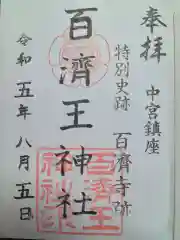 奉拝
中宮鎮座
特別史跡 百済寺跡
百濟王神社
令和五年八月五日